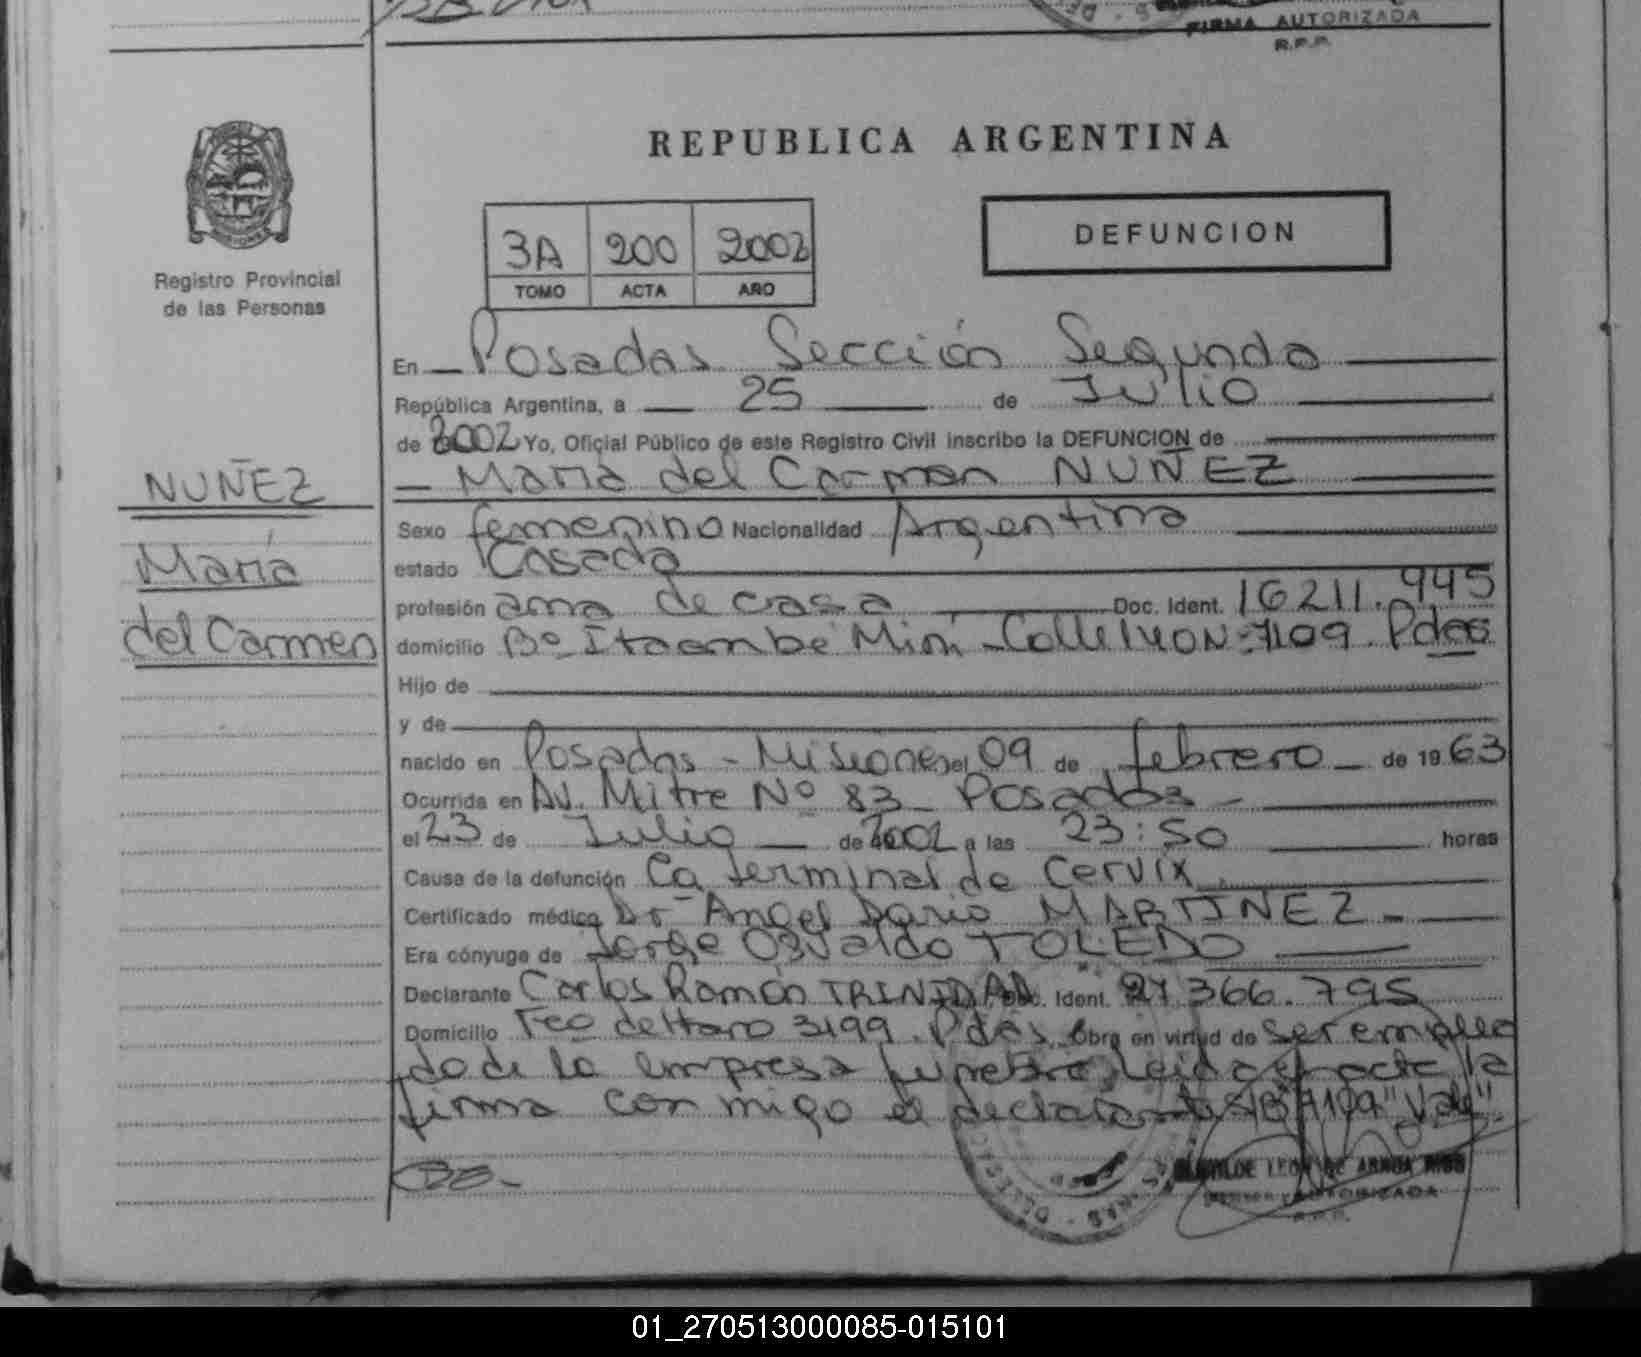 FIRMA AUTORIZADA
R.P.P.
REPUBLICA ARGENTINA
3A 200 2002
TOMO ACTA AÑO
DEFUNCION
Registro Provincial
de las Personas
NUÑEZ
María
del Carmen
En Posadas Sección Segunda
República Argentina, a 25 de Julio
de 2002 Yo, Oficial Público de este Registro Civil inscribo la DEFUNCION de
María del Carmen NUÑEZ
Sexo femenino Nacionalidad Argentina
estado Casada
profesión ama de casa Doc. Ident. 16211.945
domicilio Bº Itaembé Miní - Calle 7109. Pdas
Hijo de
y de
nacido en Posadas - Misiones el 09 de febrero de 1963
Ocurrida en Av. Mitre Nº 83 - Posadas -
el 23 de Julio de 2002 a las 23:50 horas
Causa de la defunción Ca terminal de Cervix
Certificado médico Dr Angel Dario MARTINEZ -
Era cónyuge de Jorge Osvaldo TOLEDO
Declarante Carlos Ramón TRINIDAD Doc. Ident. 27.366.795
Domicilio Fco de Haro 3199. Pdas. Obra en virtud de ser emplea
do de la empresa funebre, leida el acta la
firma conmigo el declarante "Vale".
FIRMA AUTORIZADA
R.P.P.
01_270513000085-015101